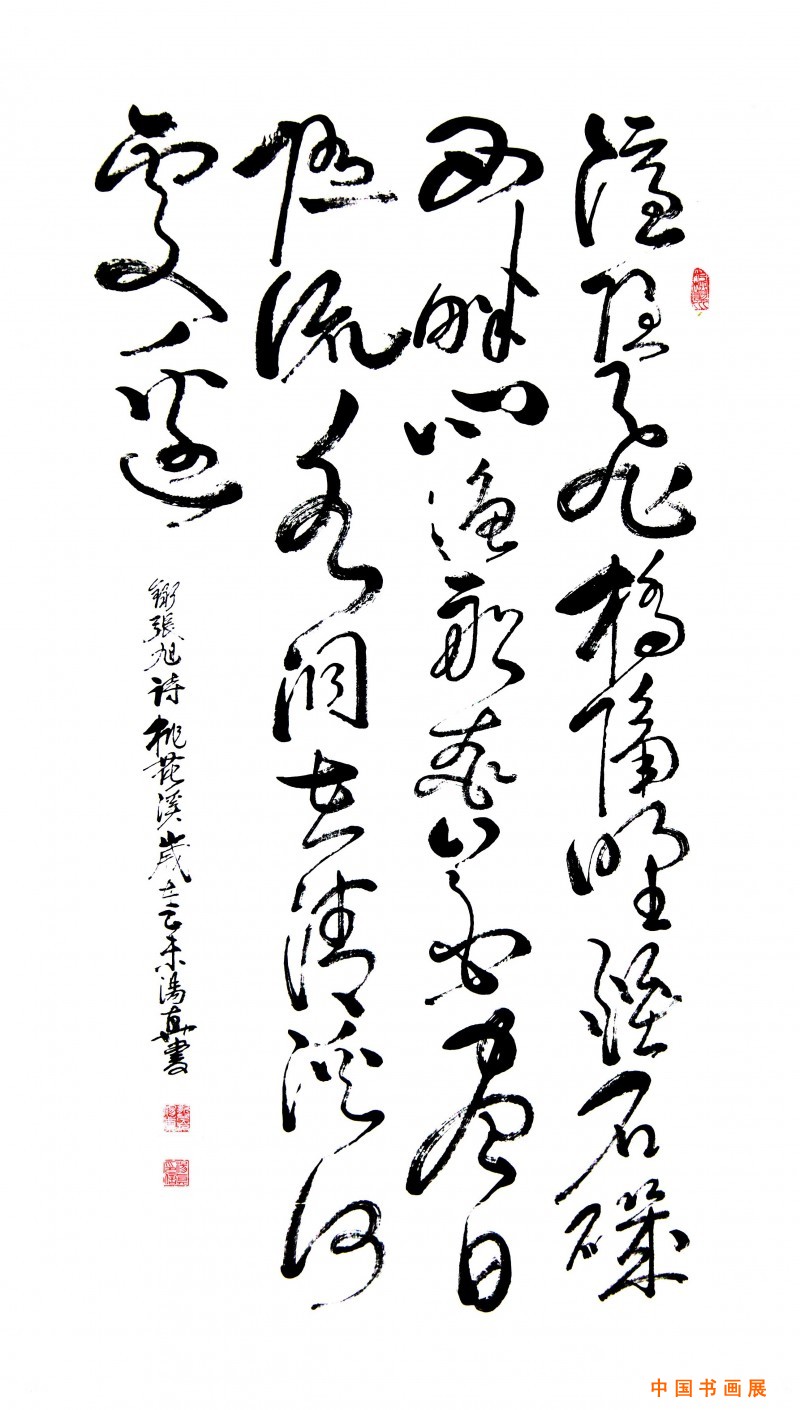 隱隱飛橋隔野煙石磯
西畔问漁船桃花盡日
隨流水洞在清溪何
處邊
錄張旭诗桃花溪歲在未湯真書
中国书画展